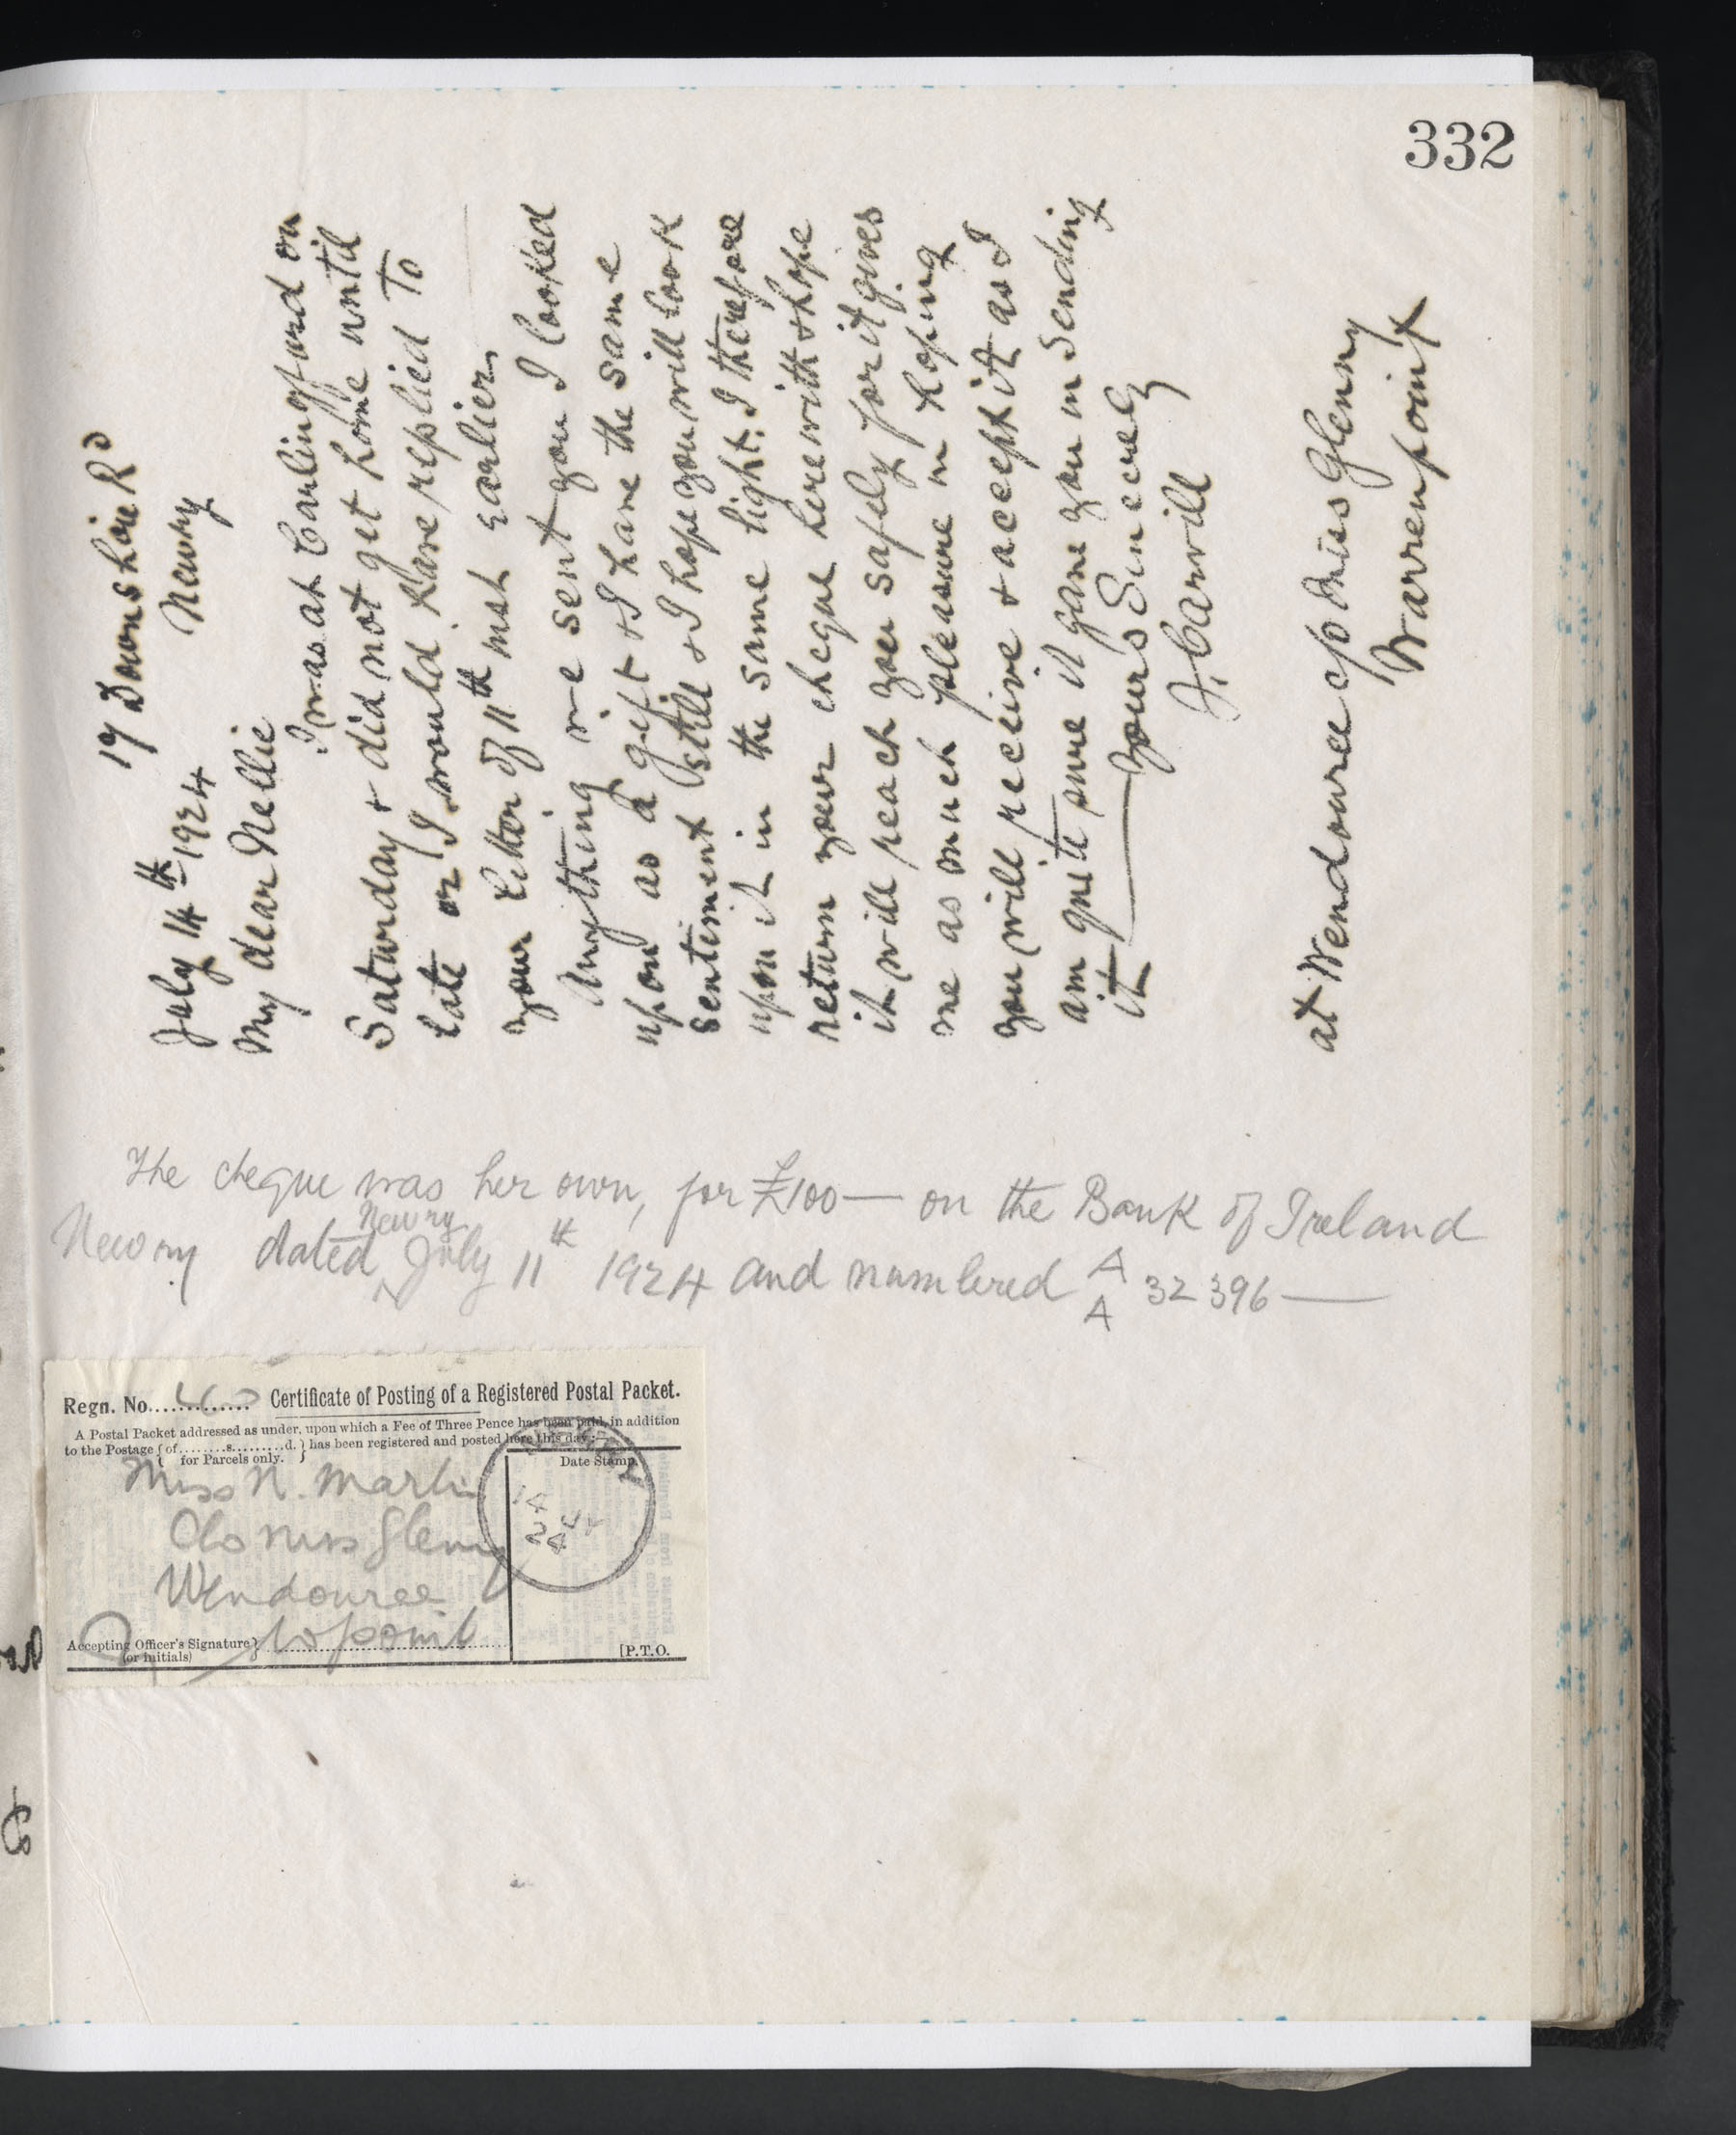 332
17 Downshire Rd
Newry
July 14th 1924
My dear Nellie
I was at Carlingford on
Saturday + did not get home until
late or I would have replied to
your letter of 11th inst earlier.
Anything we sent you I looked
upon as a gift + I have the same
sentiment still + I hope you will look
upon it in the same light. I therefore
return your cheque herewith + hope
it will reach you safely for it gives
me as much pleasure in hoping
you will receive + accept it as I
am quite sure it gave you in sending
it — yours Sincerely
J. Carvill
at Wendouree c/o Miss Glenny
Warrenpoint
The cheque was her own, for £100 — on the Bank of Ireland
Newry dated Newry July 11th 1924 and numbered A/A 32396 —
Regn. No. 40 Certificate of Posting of a Registered Postal Packet.
A Postal Packet addressed as under, upon which a Fee of Three Pence has been paid, in addition
to the Postage { of ........s.........d. } has been registered and posted here this day :—
for Parcels only.
Date Stamp.
Miss N. Martin
C/o Miss Glenny
Wendouree
W/point
Accepting Officer's Signature }
(or initials)
[P.T.O.